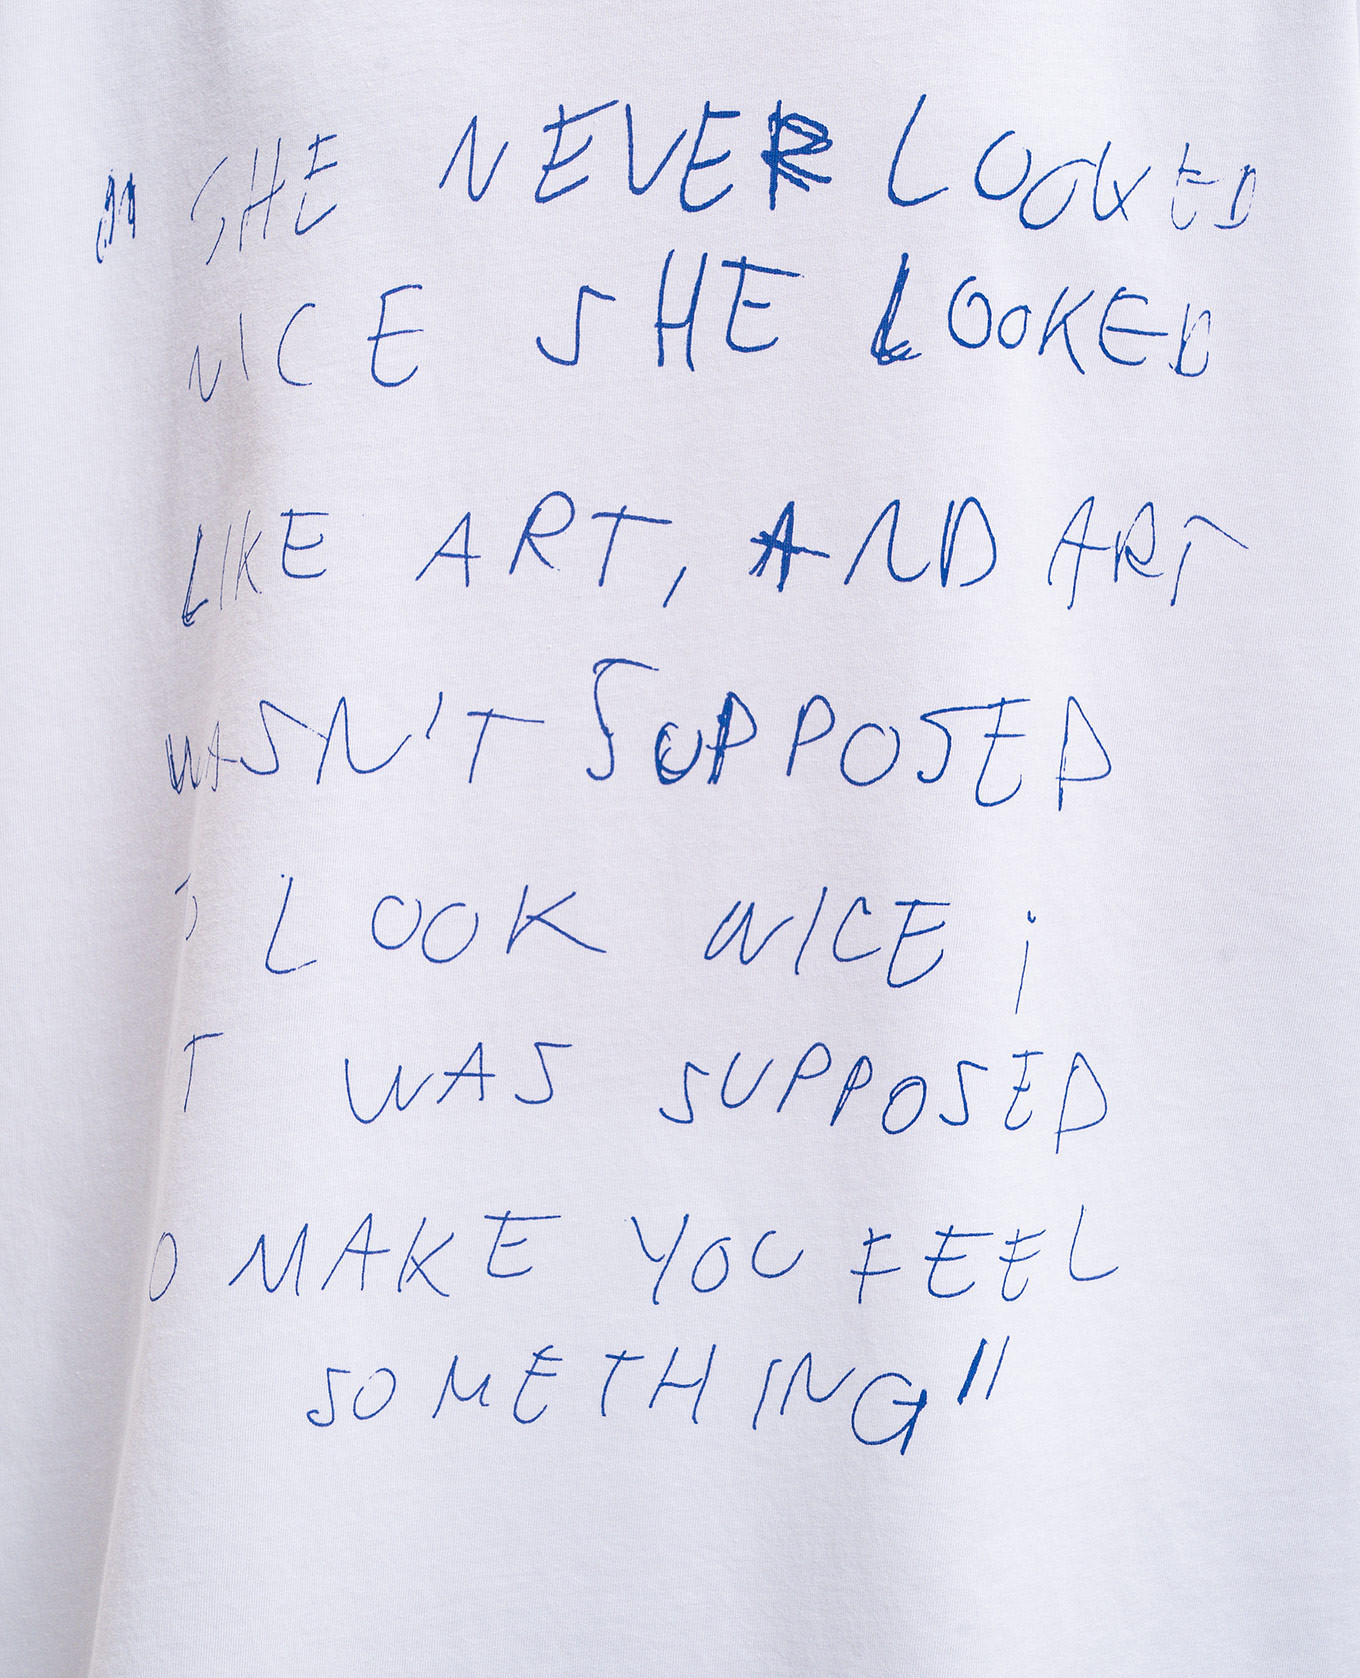 " SHE NEVER LOOKED
NICE SHE LOOKED
LIKE ART, AND ART
WASN'T SUPPOSED
O LOOK NICE ;
T WAS SUPPOSED
O MAKE YOU FEEL
SOMETHING"